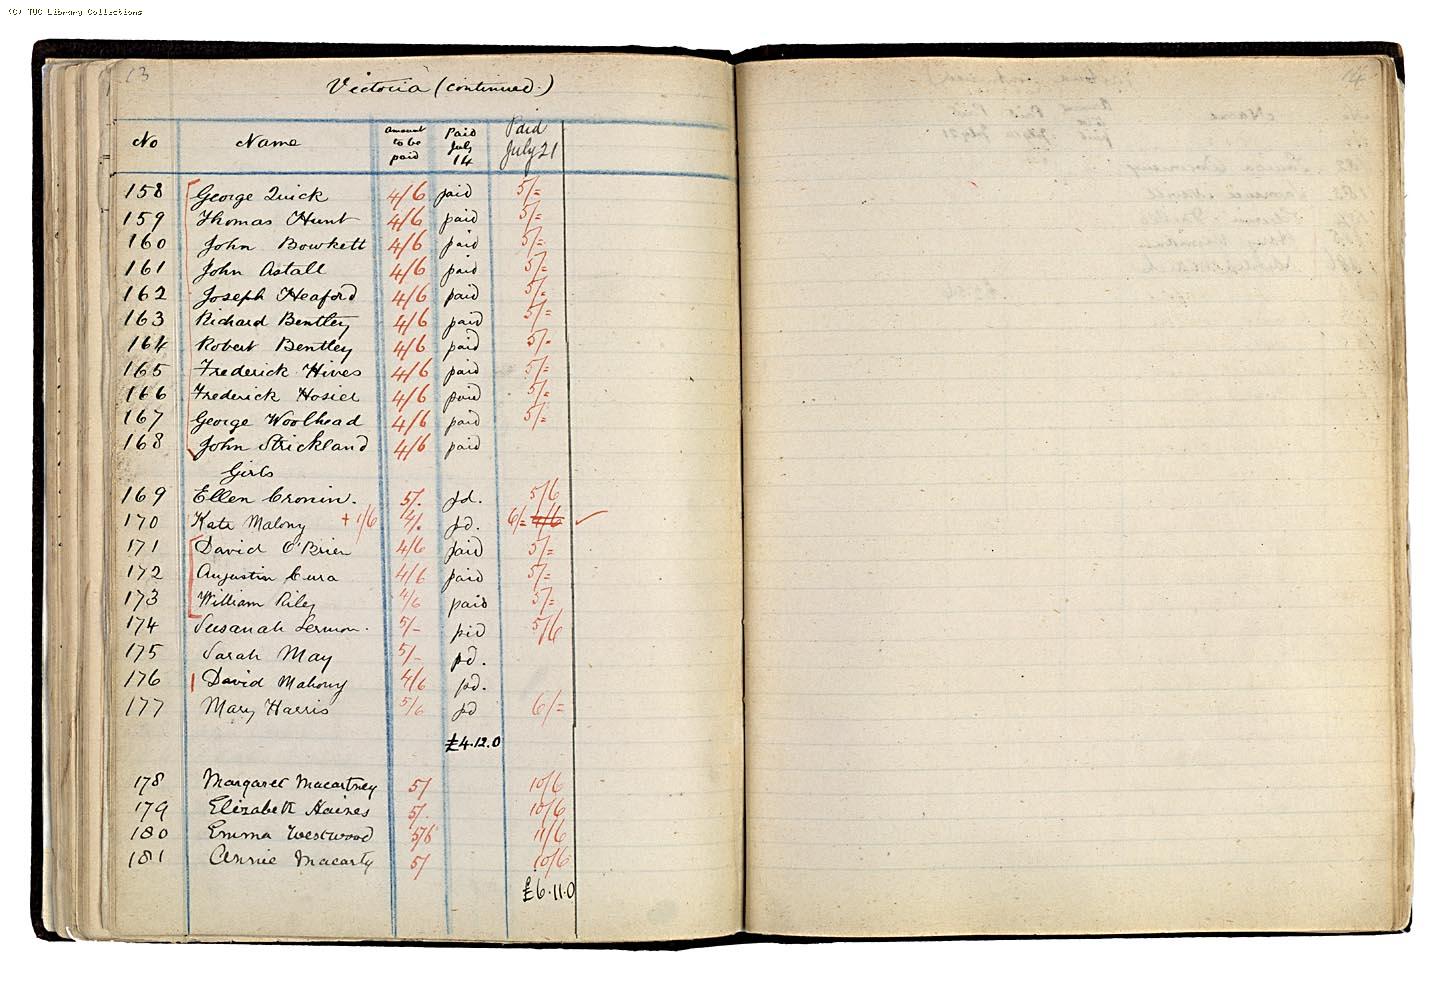 (C) TUC Library Collections
13
Victoria (continued.)
No Name Amount to be paid Paid July 14 Paid July 21
158 George Quick 4/6 paid 5/=
159 Thomas Hunt 4/6 paid 5/=
160 John Bowkett 4/6 paid 5/=
161 John Astall 4/6 paid 5/=
162 Joseph Heaford 4/6 paid 5/=
163 Richard Bentley 4/6 paid 5/=
164 Robert Bentley 4/6 paid 5/=
165 Frederick Hives 4/6 paid 5/=
166 Frederick Hosier 4/6 paid 5/=
167 George Woolhead 4/6 paid 5/=
168 John Strickland 4/6 paid
Girls
169 Ellen Cronin. 5/. pd. 5/6
170 Kate Malony +1/6 4/. pd. 6/= 4/6
171 David O'Brien 4/6 paid 5/=
172 Augustin Cura 4/6 paid 5/=
173 William Riley 4/6 paid 5/=
174 Susanah Lermon. 5/- pid 5/6
175 Sarah May 5/- pd.
176 David Mahony 4/6 pd.
177 Mary Harris 5/6 pd 6/=
£4.12.0
178 Margaret Macartney 5/ 10/6
179 Elizabeth Haines 5/. 10/6
180 Emma Westwood 5/6 11/6
181 Annie Macarty 5/ 10/6
£6.11.0
14